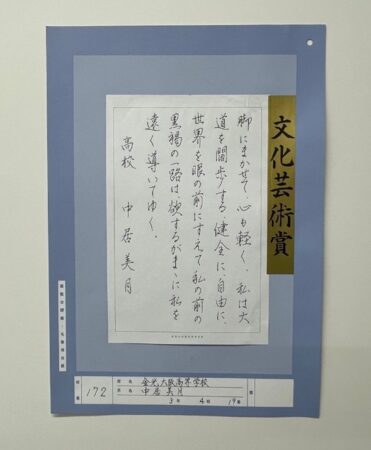 文化芸術賞
脚にまかせて、心も軽く、私は大
道を闊歩する、健全に、自由に、
世界を眼の前にすえて私の前の
黒褐の一路は、欲するがまゝに私を
遠く導いてゆく。
高校 中居美月
172
金光大阪高等学校
中居美月
3年 4組 19番